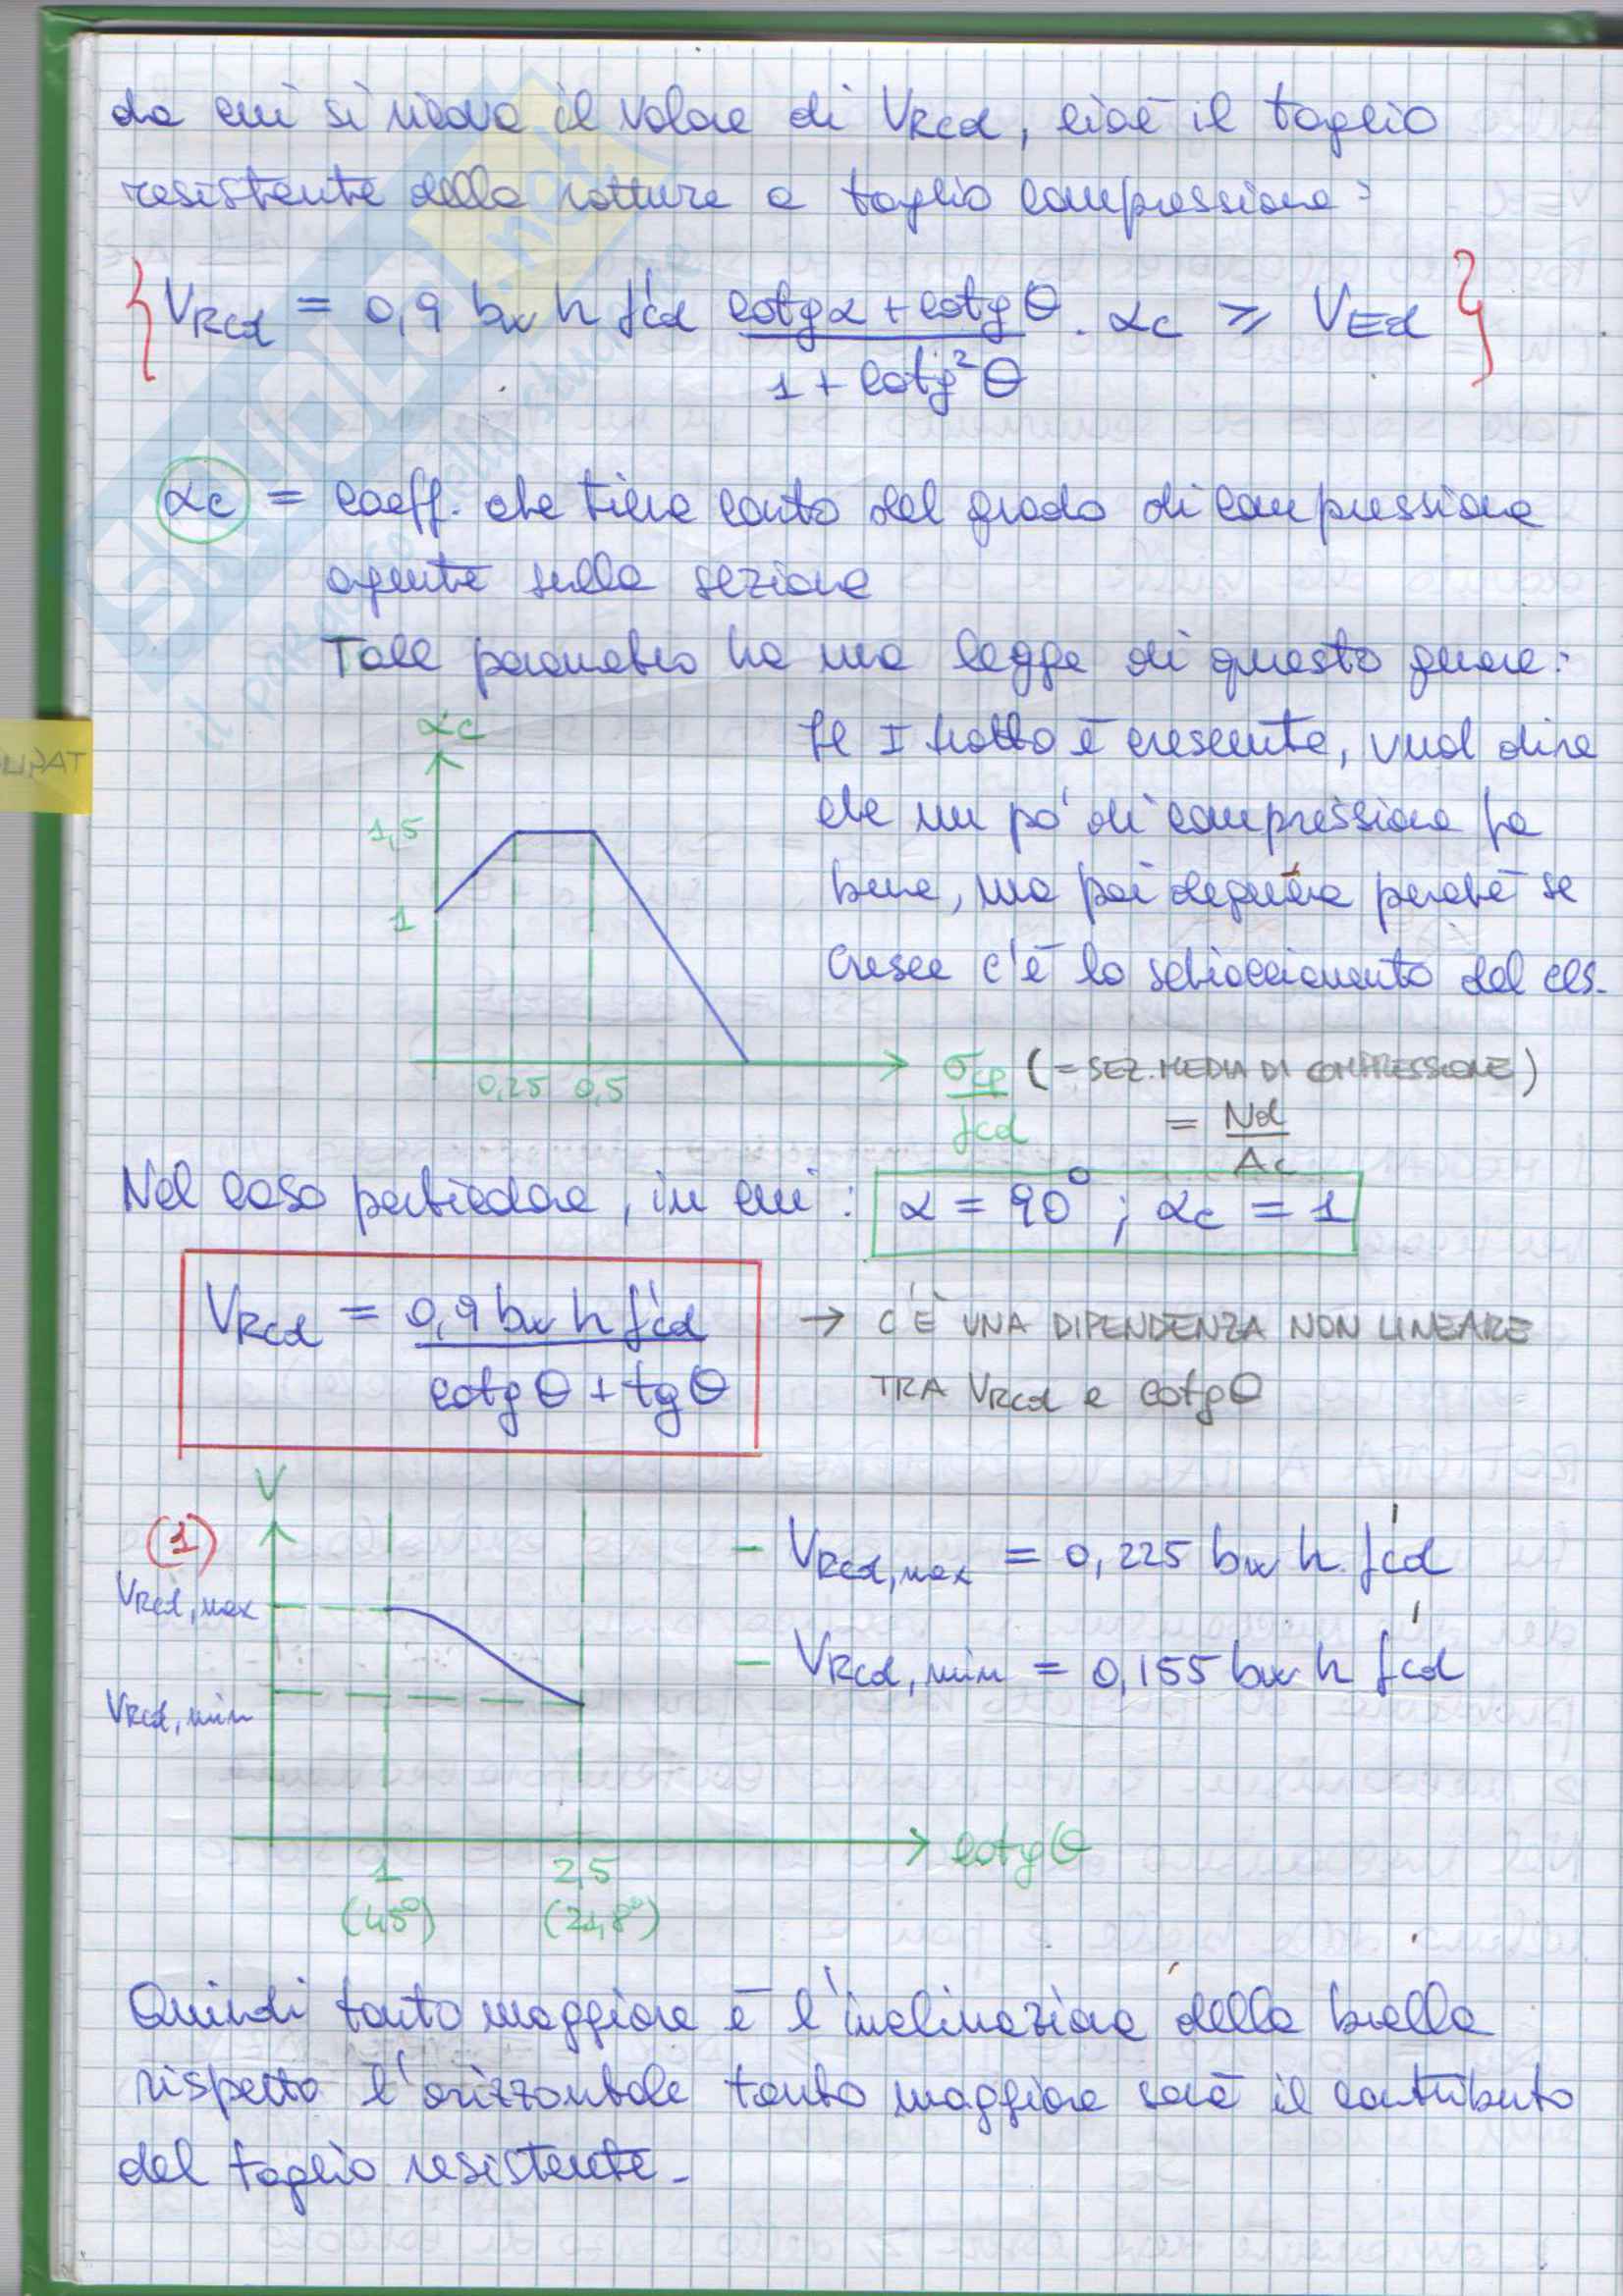 da cui si ricava il valore di VRcd, cioè il taglio
resistente della rottura a taglio compressione:
VRcd = 0,9 bw h f'cd (cotgα + cotgθ)/(1 + cotg²θ) · αc ≥ VEd
αc = coeff. che tiene conto del grado di compressione
agente sulla sezione
Tale parametro ha una legge di questo genere:
αc
1,5
1
0,25 0,5
σcp/fcd (= SEZ. MEDIA DI COMPRESSIONE)
= Nd/Ac
Il I tratto è crescente, vuol dire
che un po' di compressione fa
bene, ma poi degenera perchè se
cresce c'è lo schiacciamento del cls.
Nel caso particolare, in cui: α = 90°; αc = 1
VRcd = 0,9 bw h f'cd/(cotgθ + tgθ)
→ C'È UNA DIPENDENZA NON LINEARE
TRA VRcd e cotgθ
(1)
V
VRcd,max
VRcd,min
1
(45°)
2,5
(21,8°)
cotgθ
- VRcd,max = 0,225 bw h f'cd
- VRcd,min = 0,155 bw h f'cd
Quindi tanto maggiore è l'inclinazione della biella
rispetto l'orizzontale tanto maggiore sarà il contributo
del taglio resistente.
SKUOLA.net